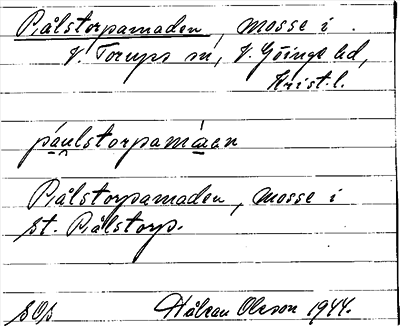 Pålstorpamaden, mosse i
V. Torups sn, V. Göinge hd,
Krist. l.
páulstorpamáen
Pålstorpamaden, mosse i
st. Pålstorp.
Håkan Olsson 1944.